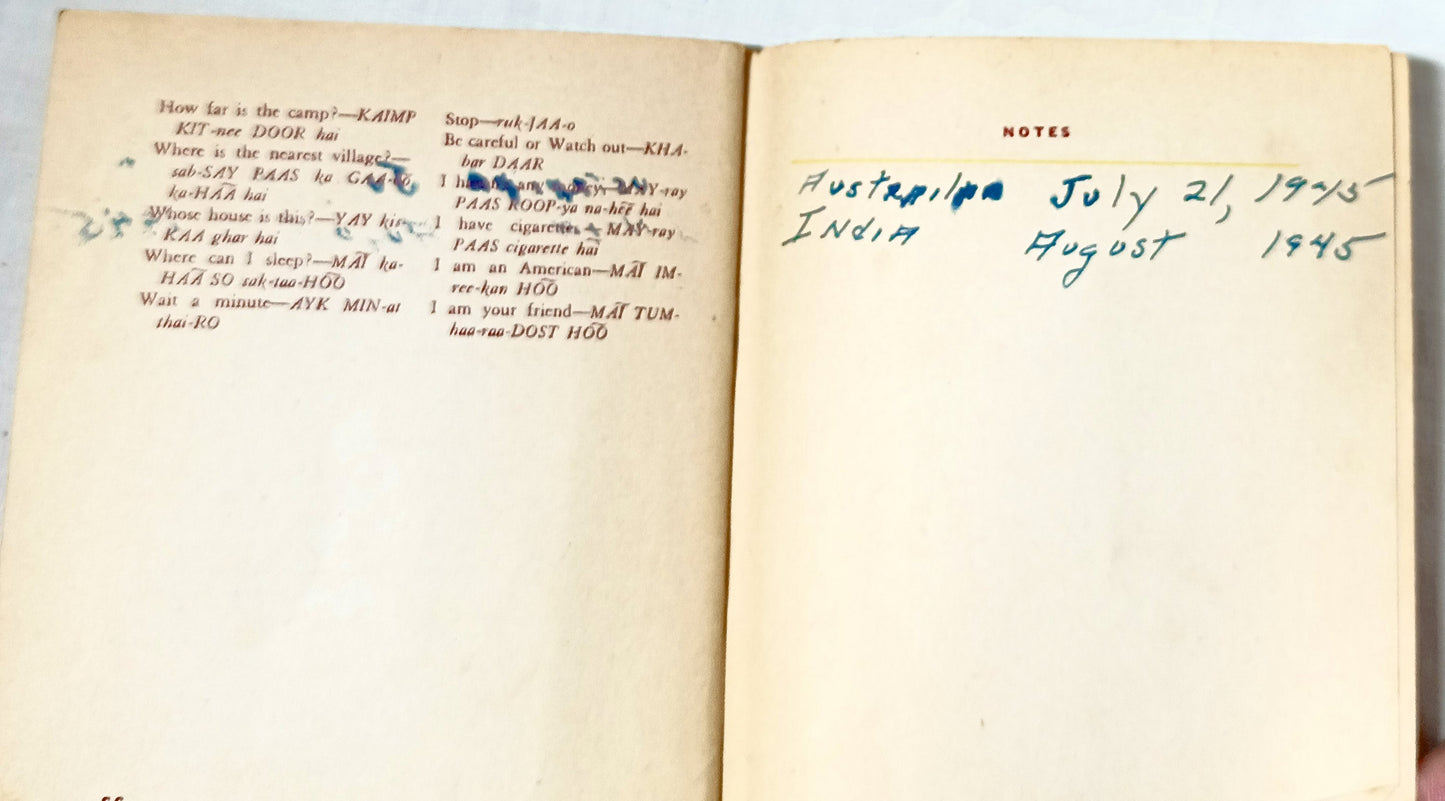 How far is the camp?—KAIMP
KIT-nee DOOR hai
Where is the nearest village?—
sab-SAY PAAS ka GAA-ō
ka-HAÃ hai
Whose house is this?—YAY kis-
KAA ghar hai
Where can I sleep?—MAĨ ka-
HAÃ SO sak-taa-HÕÕ
Wait a minute—AYK MIN-at
thai-RO
Stop—ruk-JAA-o
Be careful or Watch out—KHA-
bar DAAR
I any MAY-ray
PAAS ROOP-ya na-hẽẽ hai
I have cigarettes—MAY-ray
PAAS cigarette hai
I am an American—MAĨ IM-
ree-kan HÕÕ
I am your friend—MAĨ TUM-
haa-raa-DOST HÕÕ
NOTES
Australia July 21, 1945
India August 1945